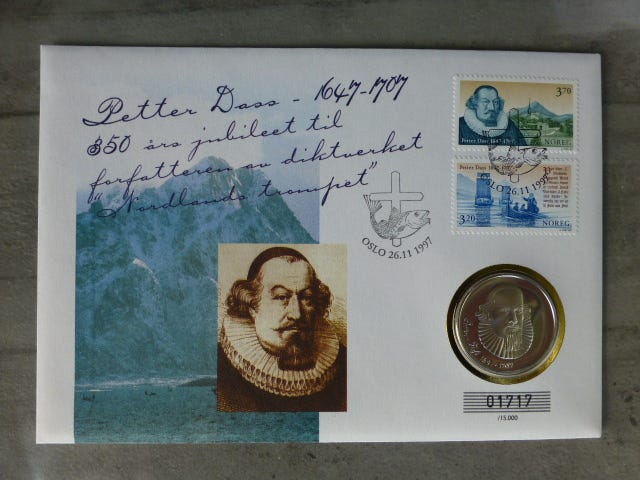 Petter Dass - 1647-1707
350 års jubileet til
forfatteren av diktverket
"Nordlands trompet"
3.70
NOREG
Petter Dass 1647-1707
Petter Dass 1647-1707
3.20
NOREG
OSLO 26.11.1997
OSLO 26.11.1997
01717
/15.000